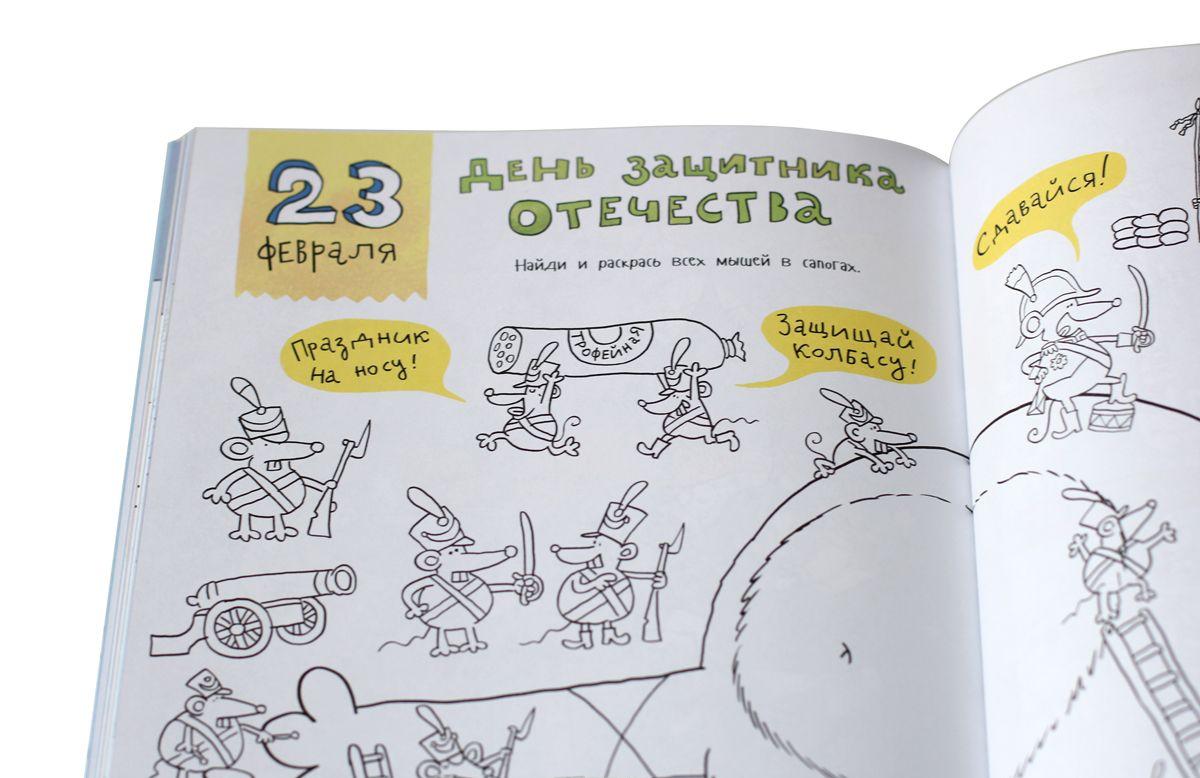 23
февраля
ДЕНЬ ЗАЩИТНИКА
ОТЕЧЕСТВА
Найди и раскрась всех мышей в сапогах.
Праздник
на носу!
ТРОФЕЙНАЯ
Защищай
колбасу!
Сдавайся!